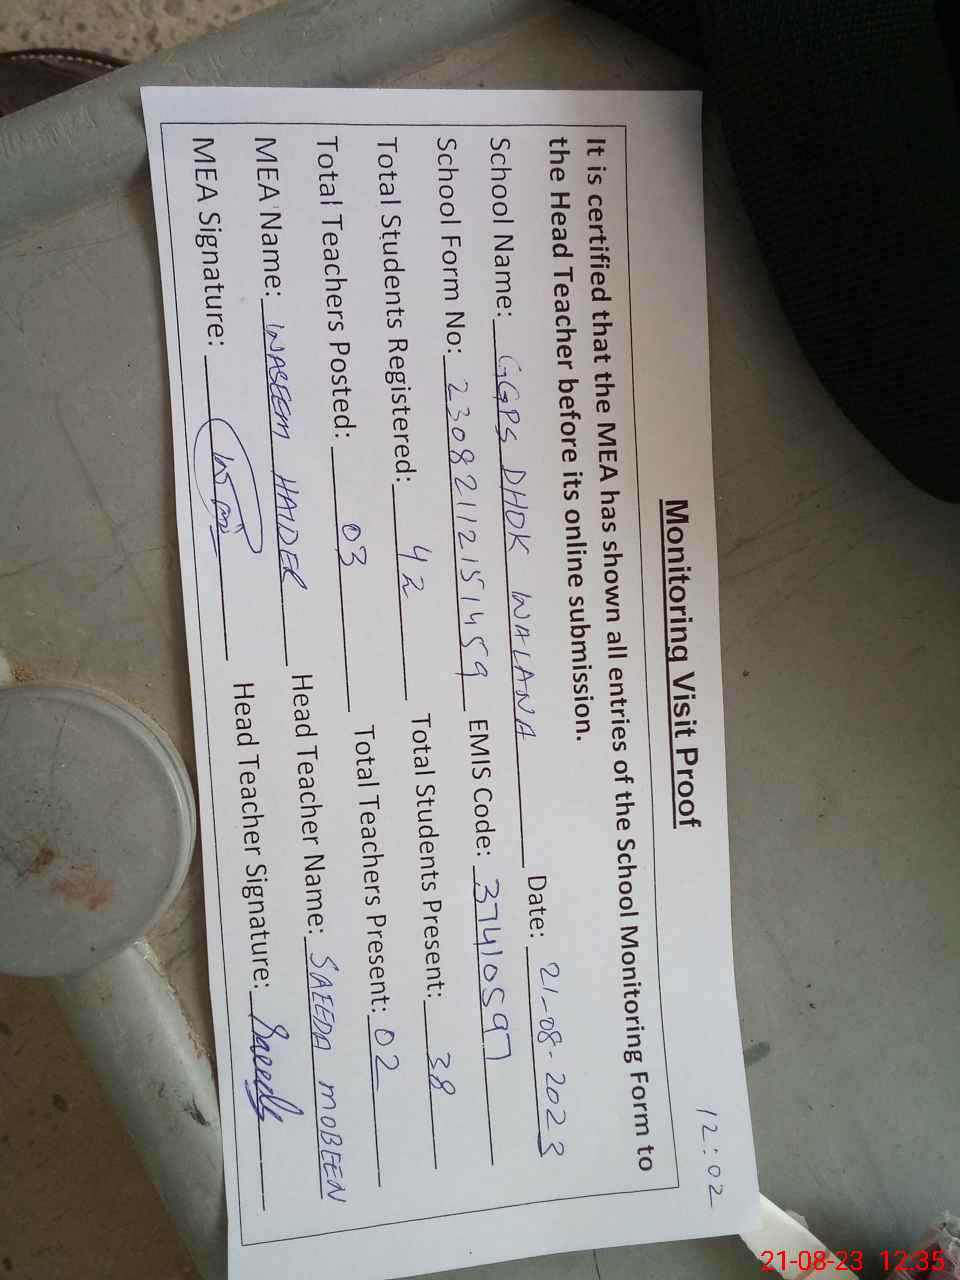 12:02
Monitoring Visit Proof
It is certified that the MEA has shown all entries of the School Monitoring Form to
the Head Teacher before its online submission.
School Name: GGPS DHOK WALANA Date: 21-08-2023
School Form No: 23082112151459 EMIS Code: 37410597
Total Students Registered: 42 Total Students Present: 38
Total Teachers Posted: 03 Total Teachers Present: 02
MEA Name: WASEEM HAIDER Head Teacher Name: SAEEDA MOBEEN
MEA Signature: Head Teacher Signature: Saeeda
21-08-23 12:35